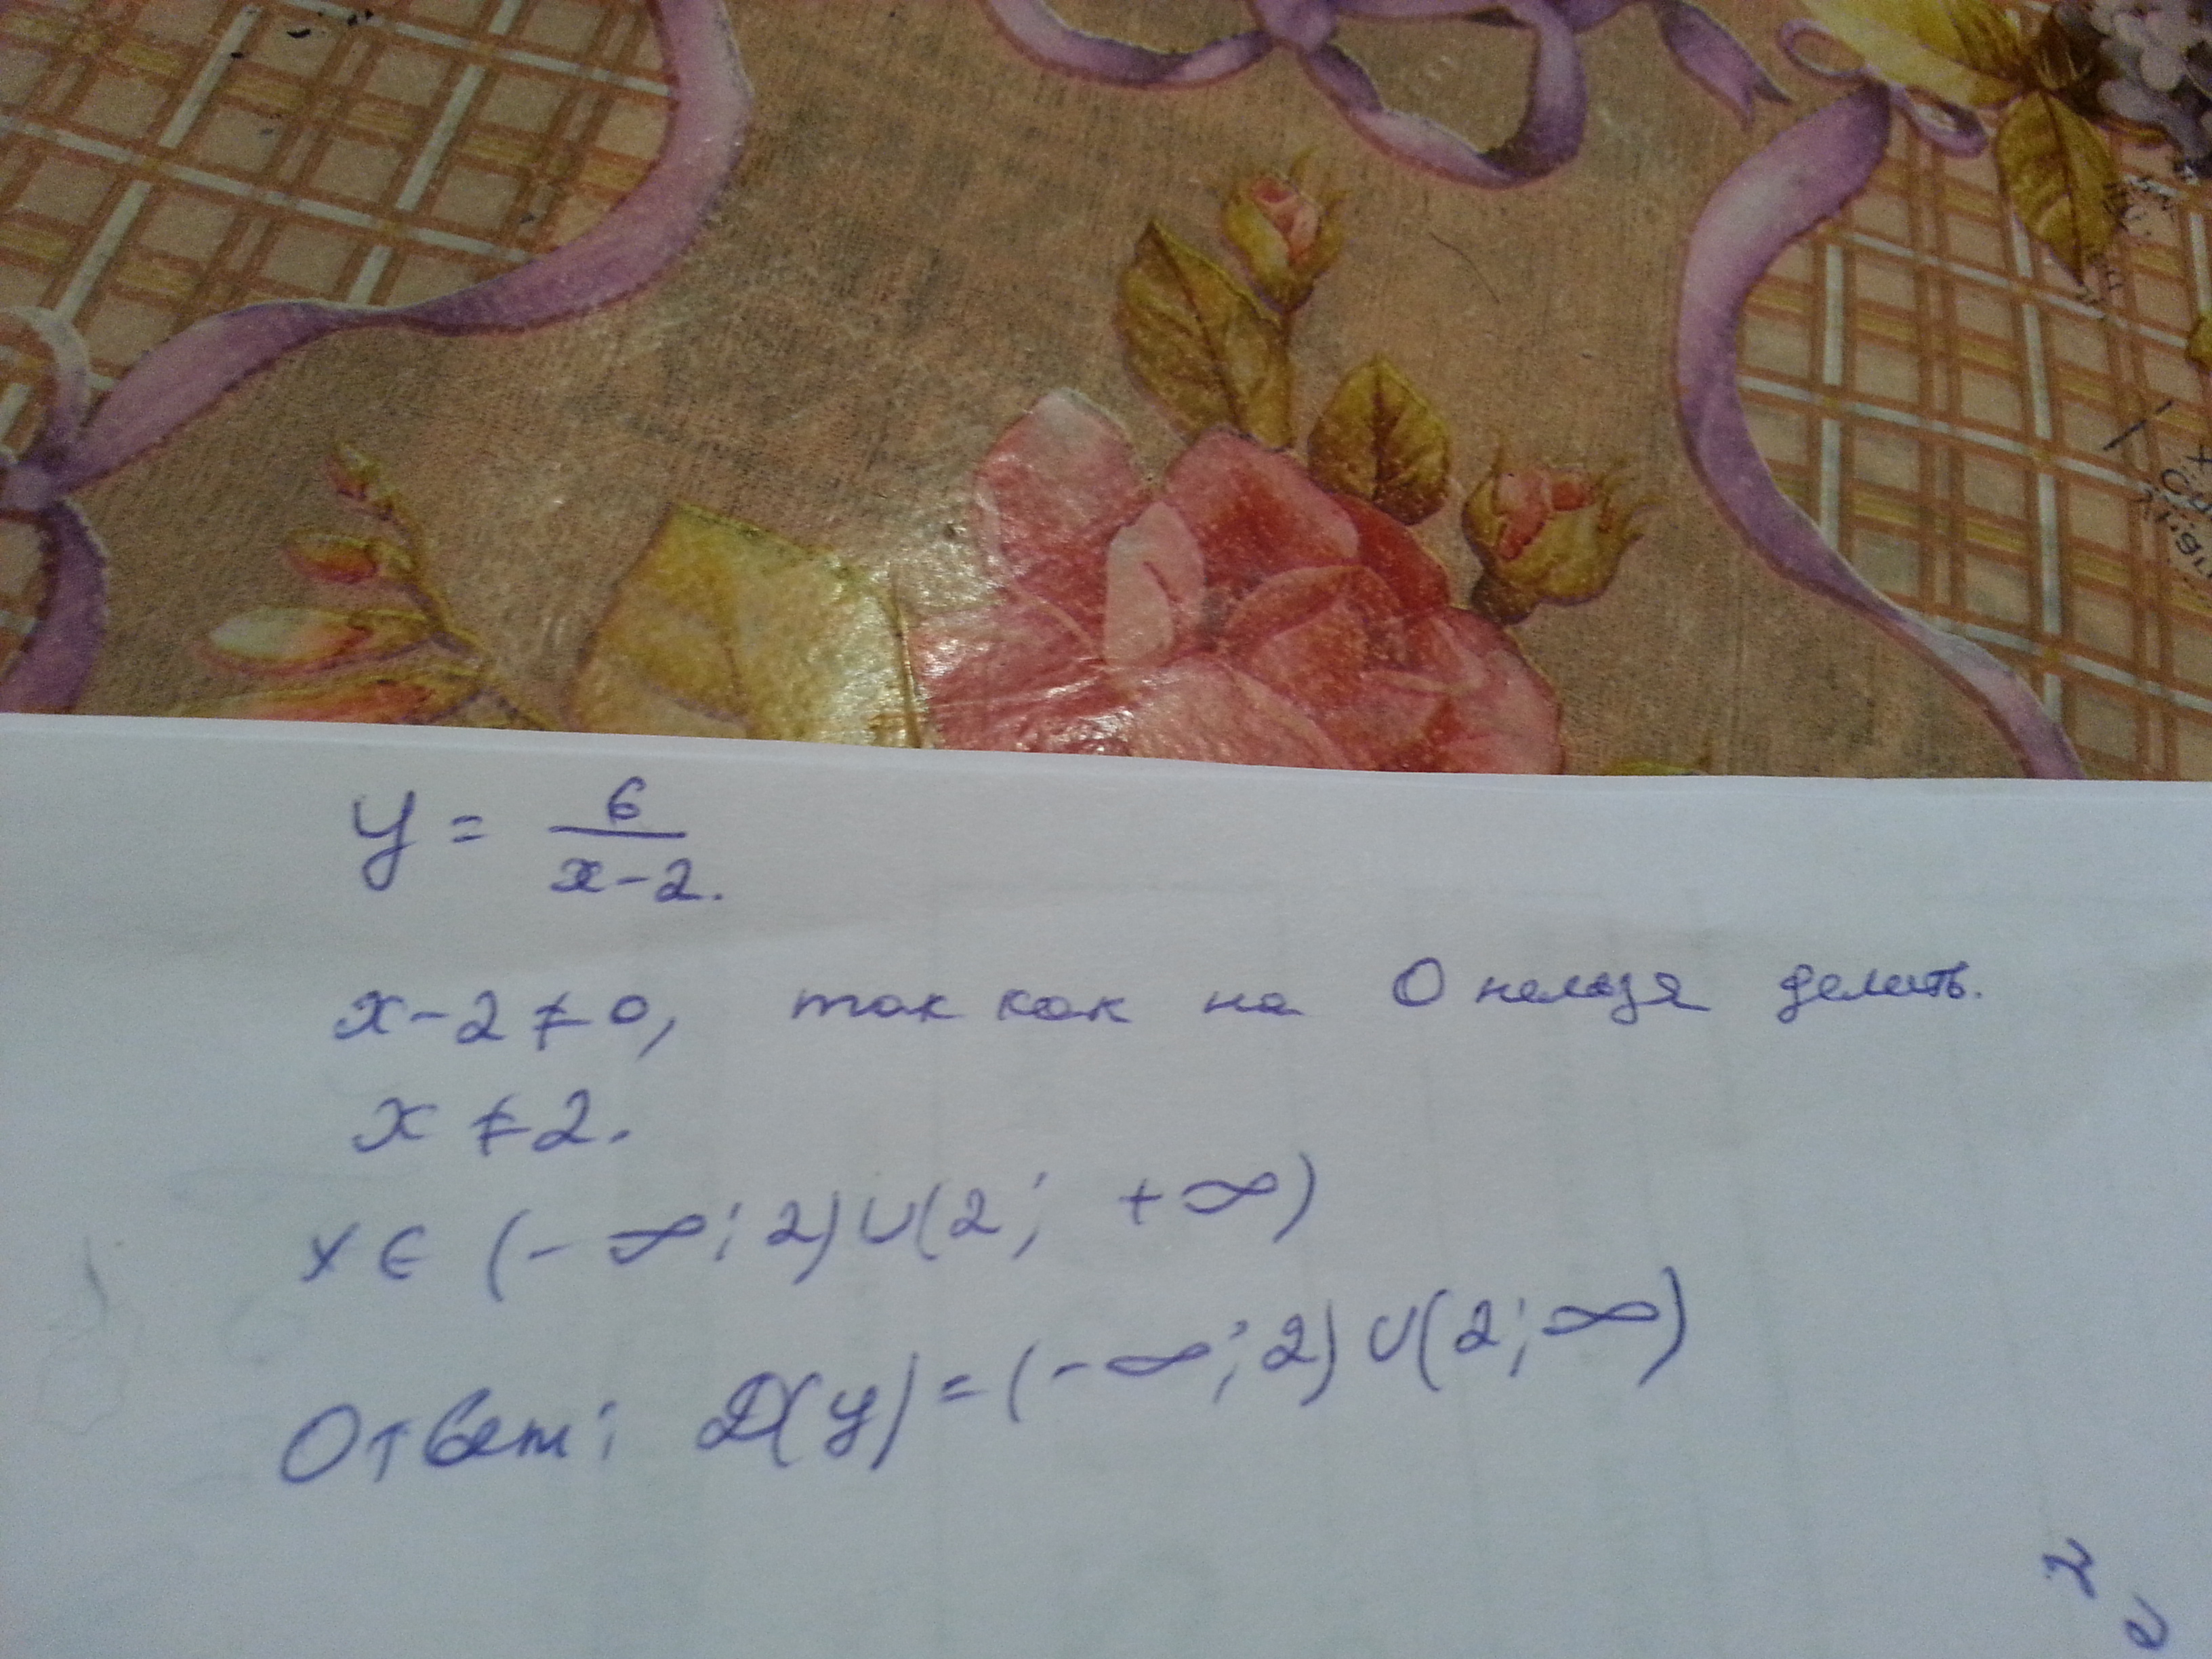 y = 6/(x-2).
x-2≠0, так как на 0 нельзя делить.
x ≠ 2.
x ∈ (-∞; 2) ∪ (2; +∞)
Ответ: D(y) = (-∞; 2) ∪ (2; ∞)